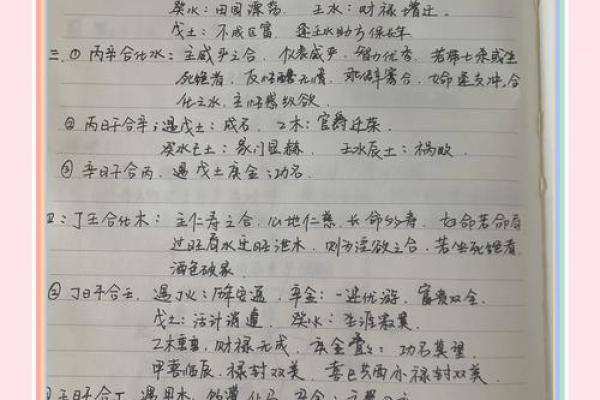 癸水：田园漂荡。 壬水：财禄增迁。
戊土：不成巨富，逢壬水助方保长年
三、① 丙辛合化水：主威严之合，仪表威严，智力优秀，若带七杀或坐
死绝者，反情无情，乖僻寡合，女命逢支冲合
化之水，主情感纵欲。
② 丙日干合辛：遇戊土：成名，乙木：官爵迁荣。
癸水己土：家门显赫，壬水辰土：祸败
③ 辛日干合丙，遇戊土庚金：功名。
四：丁壬合化木：主仁寿之合，心地仁慈，长命多寿，女命若命局
过旺肩水过旺泄木，则为淫欲之合，若坐死绝者
酒色破家
② 丁日干合壬，遇丁火：历年安逸，辛金：一进优游，富贵双全。
戊土：活计消遣，癸水：生涯寂寞。
乙木重重，财禄无成，庚金叠叠：功名莫望。
甲喜临辰，禄封双美，喜己共酉亦禄封双美。